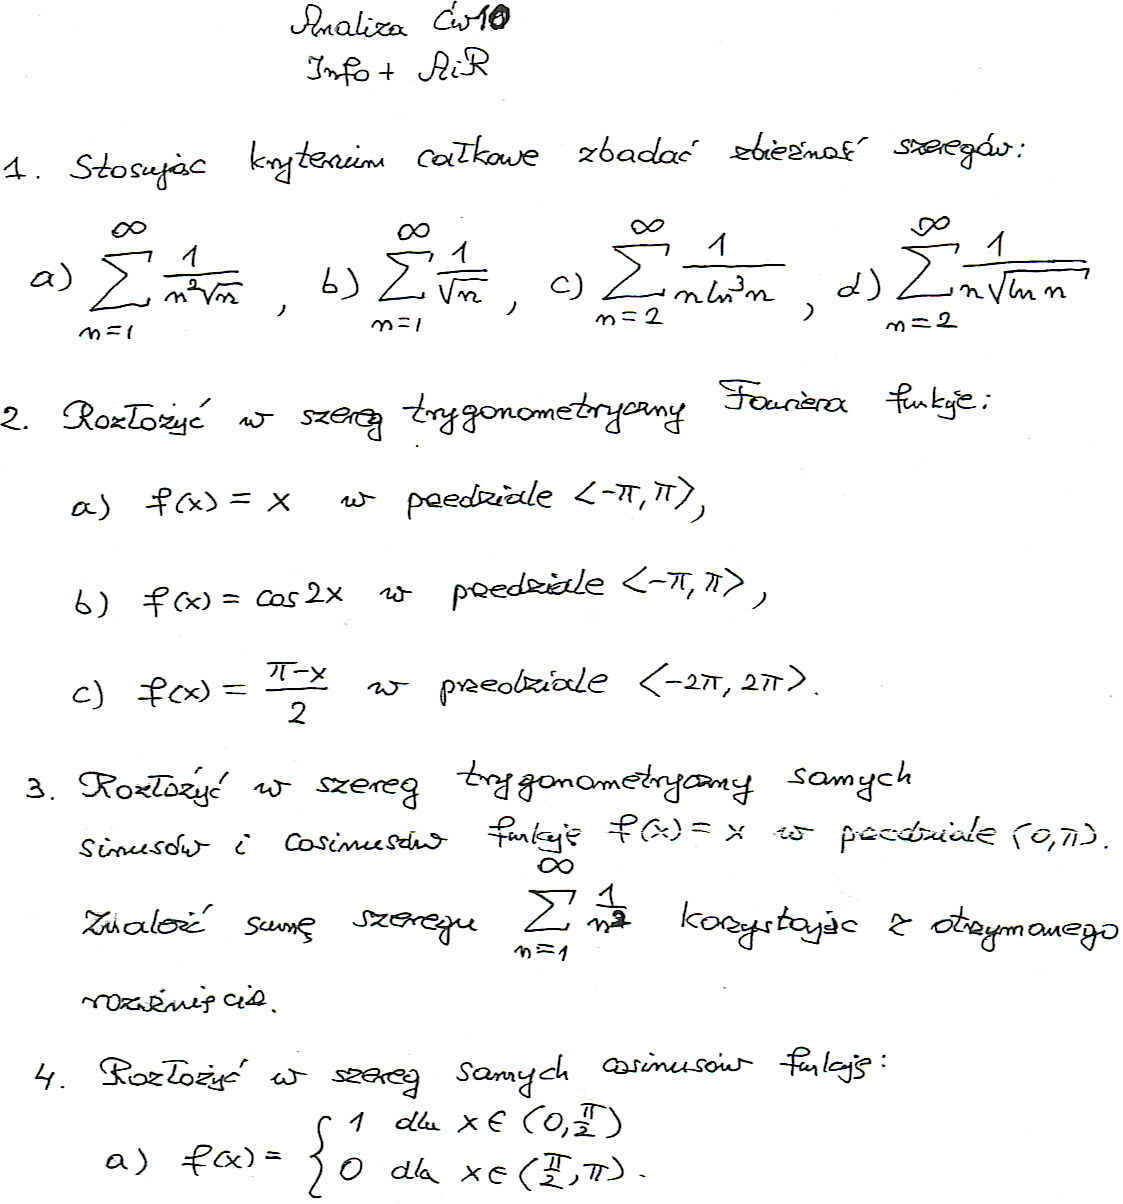 Analiza Ćw10
Info + AiR
1. Stosując kryterium całkowe zbadać zbieżność szeregów:
a) \sum_{n=1}^{\infty} \frac{1}{n^2\sqrt{n}}, b) \sum_{n=1}^{\infty} \frac{1}{\sqrt{n}}, c) \sum_{n=2}^{\infty} \frac{1}{n\ln^3 n}, d) \sum_{n=2}^{\infty} \frac{1}{n\sqrt{\ln n}}
2. Rozłożyć w szereg trygonometryczny Fouriera funkcje:
a) f(x) = x w przedziale <-π, π>,
b) f(x) = cos2x w przedziale <-π, π>,
c) f(x) = \frac{π-x}{2} w przedziale <-2π, 2π>.
3. Rozłożyć w szereg trygonometryczny samych
sinusów i cosinusów funkcję f(x) = x w przedziale (0, π).
Znaleźć sumę szeregu \sum_{n=1}^{\infty} \frac{1}{n^2} korzystając z otrzymanego
rozwinięcia.
4. Rozłożyć w szereg samych cosinusów funkcję:
a) f(x) = { 1 dla x ∈ (0, \frac{π}{2})
0 dla x ∈ (\frac{π}{2}, π).